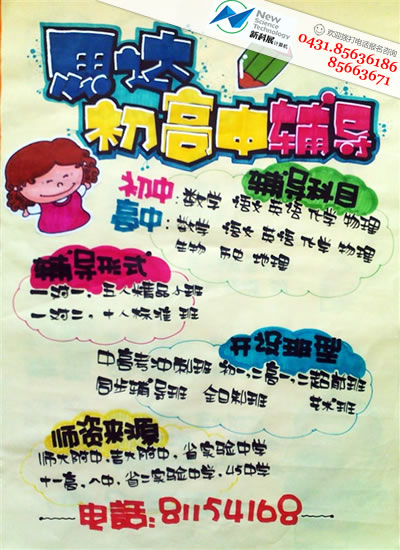 New
Science
Technology
新科展计算机
欢迎拨打电话报名咨询
0431.85636186
85663671
思达
初高中辅导
辅导科目
初中:数学 语文 英语 化学 物理
高中:数学 语文 英语 化学 物理
生物 地理
辅导形式
一对一,五人精品小班
一对二,十人标准班
开设班型
中高考冲刺班 初一,二高一,二超前班
同步辅导班 全日制班 艺术班
师资来源
师大附中,吉大附中,省实验中学
十一高,八中,省二实验中学,45中学
电话:81154168